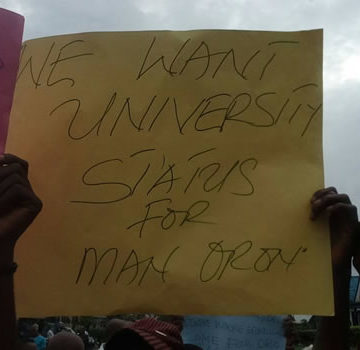 WE WANT
UNIVERSITY
STATUS
FOR
MAN ORON